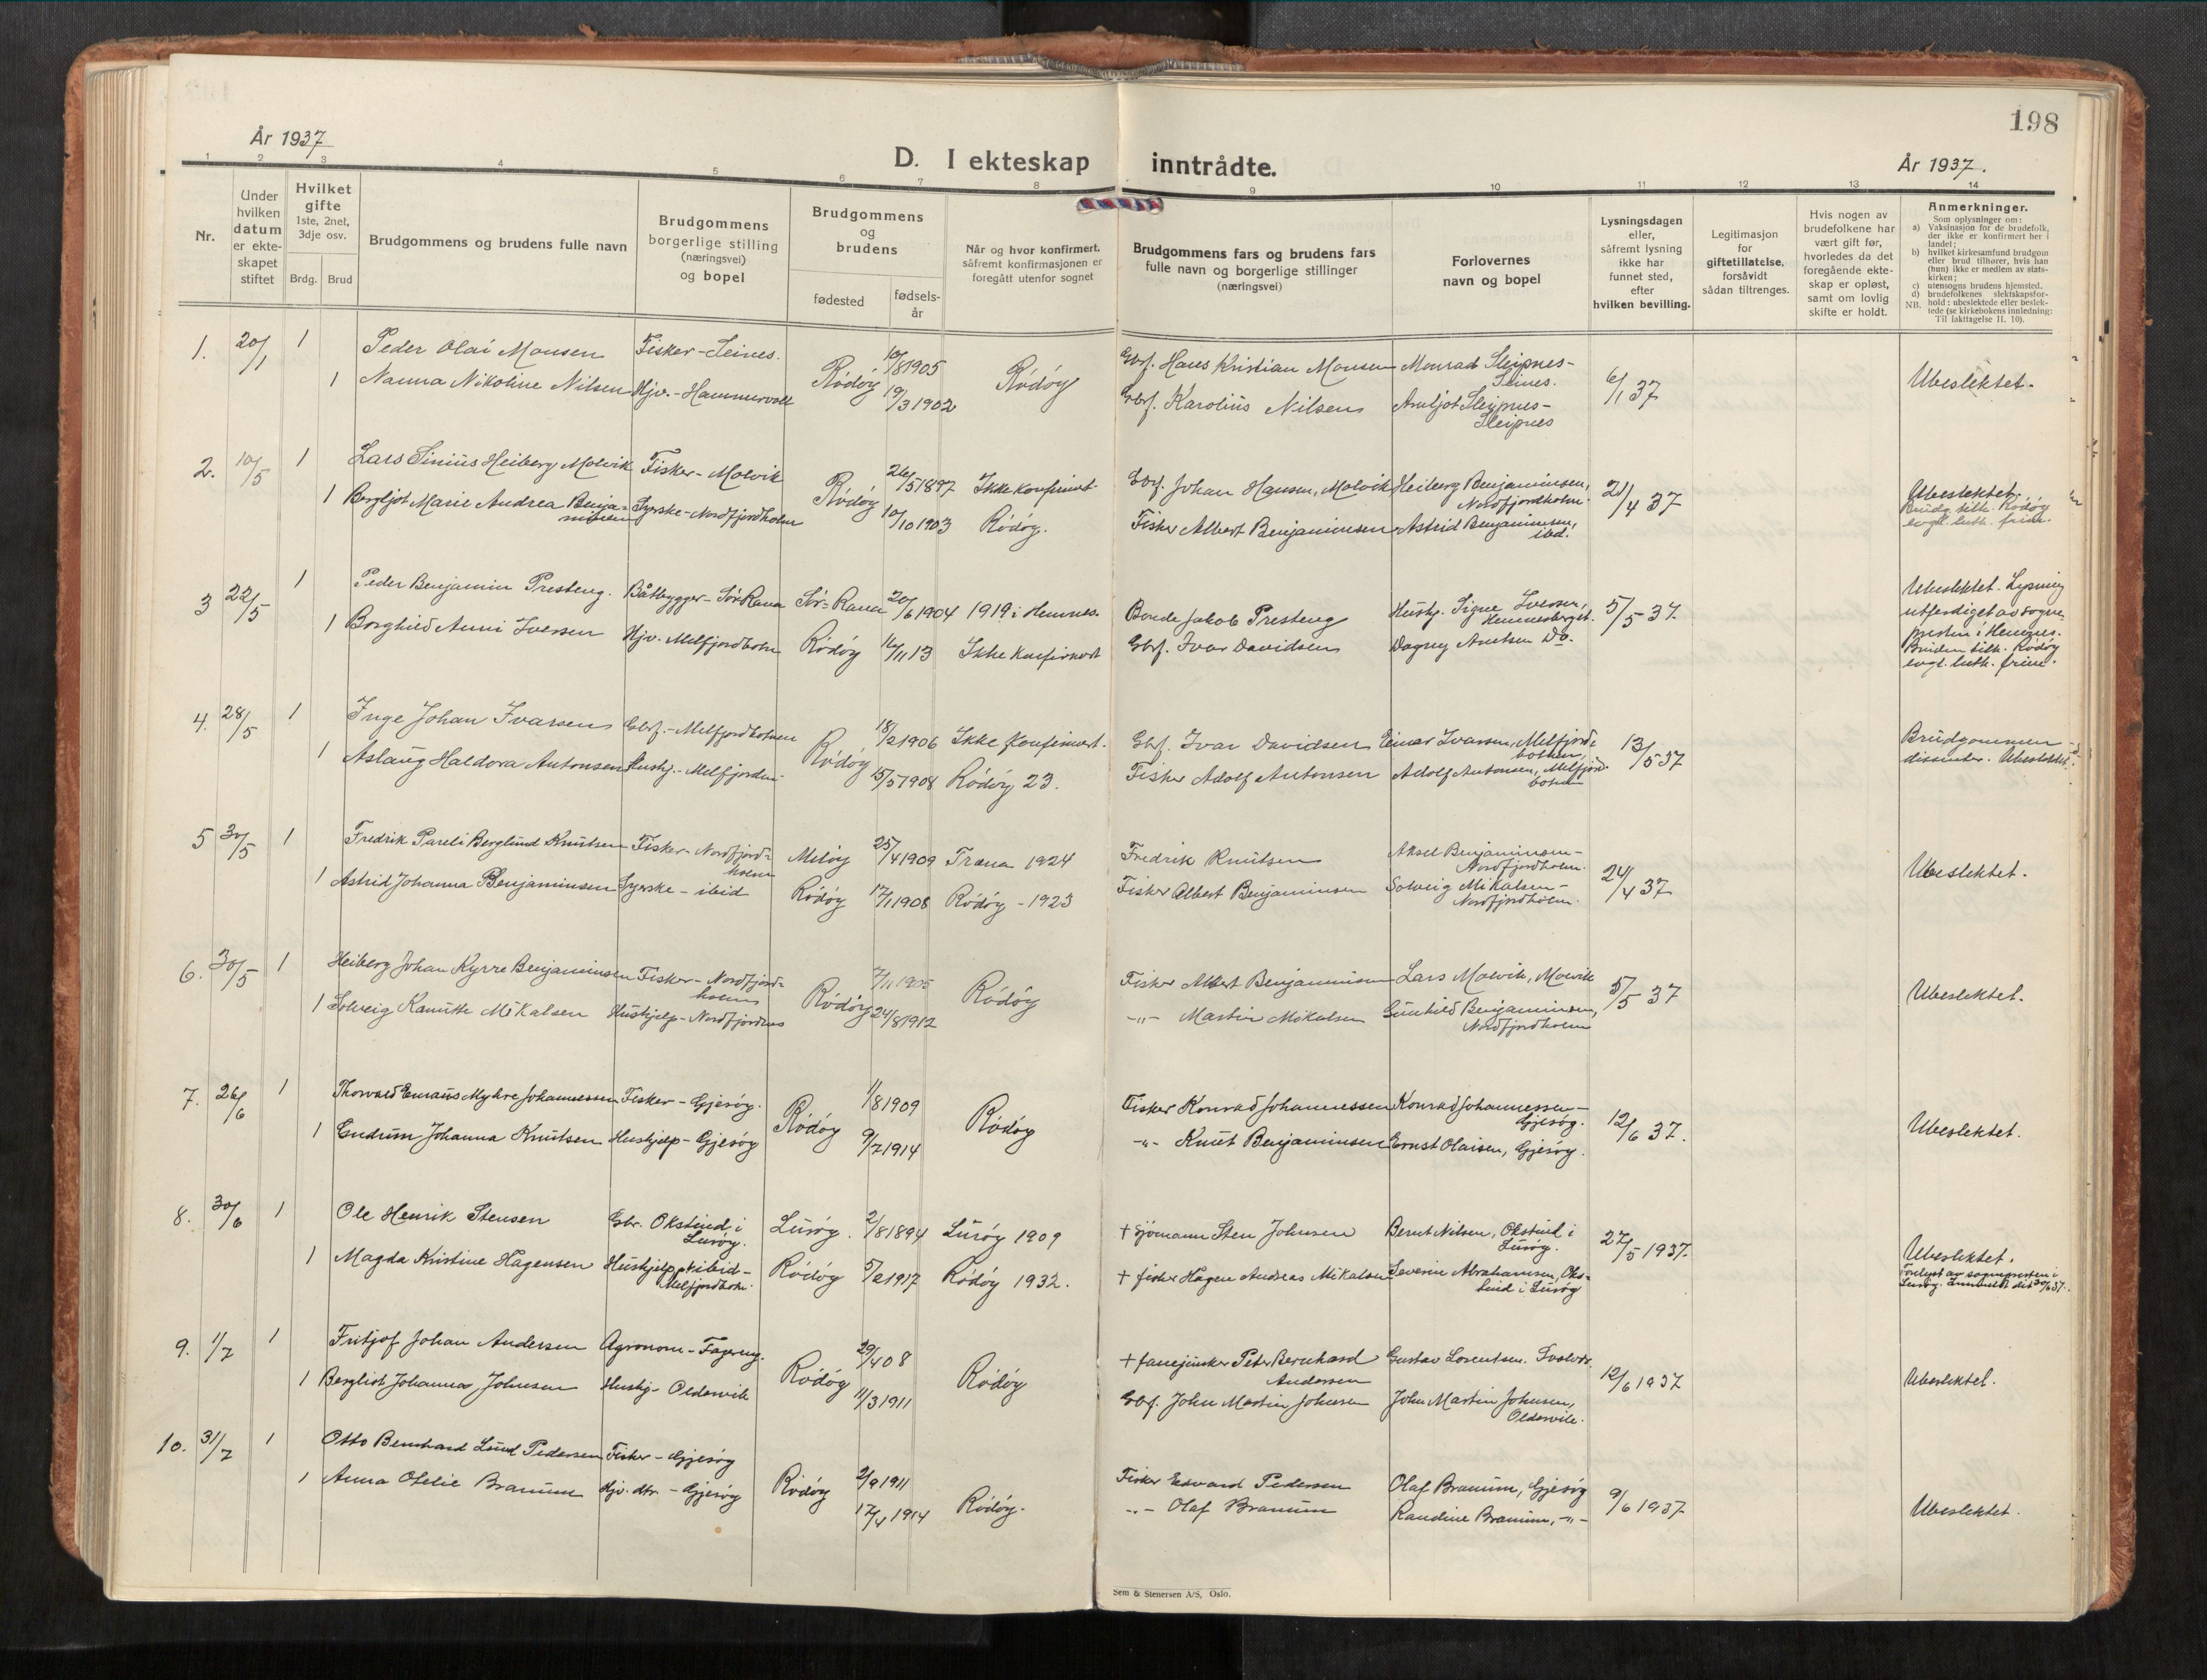 198
År 1937
D. I ekteskap inntrådte.
År 1937.
1 2 3 4 5 6 7 8 9 10 11 12 13 14
Nr.
Under hvilken datum er ekte-skapet stiftet
Hvilket gifte 1ste, 2net, 3dje osv.
Brdg. Brud
Brudgommens og brudens fulle navn
Brudgommens borgerlige stilling (næringsvei) og bopel
Brudgommens og brudens
fødested
fødsels-år
Når og hvor konfirmert, såfremt konfirmasjonen er foregått utenfor sognet
Brudgommens fars og brudens fars fulle navn og borgerlige stillinger (næringsvei)
Forlovernes navn og bopel
Lysningsdagen eller, såfremt lysning ikke har funnet sted, efter hvilken bevilling.
Legitimasjon for giftetillatelse, forsåvidt sådan tiltrenges.
Hvis nogen av brudefolkene har vært gift før, hvorledes da det foregående ekte-skap er opløst, samt om lovlig skifte er holdt.
Anmerkninger.
Som oplysninger om:
a) Vaksinasjon for de brudefolk, der ikke er konfirmert her i landet;
b) hvilket kirkesamfund brudgom eller brud tilhører, hvis han (hun) ikke er medlem av stats-kirken;
c) utensogns brudens hjemsted.
d) brudefolkenes slektskapsfor-hold: ubeslektede eller beslek-tede (se kirkebokens innledning: Til iakttagelse II. 10).
NB.
1. 20/1 1 Peder Olai Monsen Fisker - Seines. Rödöy 10/8 1905 Rödöy Gbrf. Hans Kristian Monsen Monrad Sleipnes - Seines. 6/1 37 Ubeslektet.
1 Nanna Nikoline Nilsen Hjv. - Hammervoll 19/3 1902 Gbrf. Karolius Nilsen Arnljot Sleipnes - Sleipnes
2. 10/5 1 Lars Sinius Heiberg Molvik Fisker - Molvik Rödöy 26/5 1897 Ikke konfirmert Gbrf. Johan Hansen, Molvik Heiberg Benjaminsen, Nordfjordholm. 21/4 37 Ubeslektet. Brudg. tilh. Rödöy evgl. luth. frim.
1 Bergljot Marie Andrea Benja=minsen Syerske - Nordfjordholm 10/10 1903 Rödöy. Fisker Albert Benjaminsen Astrid Benjaminsen, ibd.
3 22/5 1 Peder Benjamin Presteng. Båtbygger - Sör Rana Sör=Rana 20/6 1904 1919 i Hemnes. Bonde Jakob Presteng Hushj. Signe Iversen, Hemnesberget. 5/5 37. Ubeslektet. Lysning utferdiget av sogne=presten i Hemnes. Bruden tilh. Rödöy evgl. luth. frim.
1 Borghild Anni Iversen Hjv. Melfjordbotn Rödöy 16/11 13 Ikke konfirmert Gbrf. Ivar Davidsen Dagny Anetsen Do.
4. 28/5 1 Inge Johan Ivarsen Gbrf. - Melfjordbotnen Rödöy 18/2 1906 Ikke konfirmert. Gbrf. Ivar Davidsen Einar Ivarsen, Melfjord=botnen 13/5 37 Brudgommen dissenter. Ubeslektet.
1 Aslaug Haldora Antonsen Hushj. - Melfjorden 15/5 1908 Rödöy 23. Fisker Adolf Antonsen Adolf Antonsen, Melfjord=botnen
5 30/5 1 Fredrik Pareli Berglund Knutsen Fisker - Nordfjord=holm Melöy 25/4 1909 Træna 1924 Fredrik Knutsen Aksel Benjaminsen - Nordfjordholm. 24/4 37 Ubeslektet.
1 Astrid Johanna Benjaminsen Syerske - ibid Rödöy 17/1 1908 Rödöy - 1923 Fisker Albert Benjaminsen Solveig Mikalsen - Nordfjordholm.
6. 30/5 1 Heiberg Johan Kyrre Benjaminsen Fisker - Nordfjord=holm Rödöy 7/11 1905 Rödöy Fisker Albert Benjaminsen Lars Molvik, Molvik 5/5 37 Ubeslektet.
1 Solveig Kanutte Mikalsen Hushjelp - Nordfjordnes 24/8 1912 -"- Martin Mikalsen Gunhild Benjaminsen, Nordfjordholm
7. 26/6 1 Thorvald Emaus Myhre Johannessen Fisker - Gjesöy. Rödöy 1/8 1909 Rödöy Fisker Konrad Johannessen Konrad Johannessen - Gjesöy. 12/6 37. Ubeslektet.
1 Gudrun Johanna Knutsen Hushjelp - Gjesöy 9/7 1914 -"- Knut Benjaminsen Ernst Olaisen, Gjesöy.
8. 30/6 1 Ole Henrik Stensen Gbr. Okstind i Luröy. Luröy. 2/8 1894 Luröy 1909 + sjömann Sten Johnsen Bernt Nilsen, Okstind i Luröy. 27/5 1937. Ubeslektet. Forelyst av sognepresten i Luröy. Innmeldt dit 30/6 37.
1 Magda Kristine Hagensen Hushjelp, ibid - Melfjordbotn. Rödöy 5/2 1917 Rödöy 1932. + fisker Hagen Andreas Mikalsen Severin Abrahamsen, Oks=tind i Luröy
9. 1/7 1 Fritjof Johan Andersen Agronom - Fagereng. Rödöy 29/4 08 Rödöy + fanejunker Peter Bernhard Andersen Gustav Lorentsen. Svolvær. 12/6 1937 Ubeslektet.
1 Bergliot Johanna Johnsen Hushj - Oldervik 11/3 1911 Gbf. John Martin Johnsen John Martin Johnsen, Oldervik.
10. 31/7 1 Otto Bernhard Lund Pedersen Fisker - Gjesöy Rödöy 2/9 1911 Rödöy. Fisker Edvard Pedersen Olaf Bramun, Gjesöy 9/6 1937 Ubeslektet.
1 Anna Otelie Bramun Hjv. dtr. - Gjesöy 17/4 1914 -"- Olaf Bramun Randine Bramun, -"-
Sem & Stenersen A/S, Oslo.